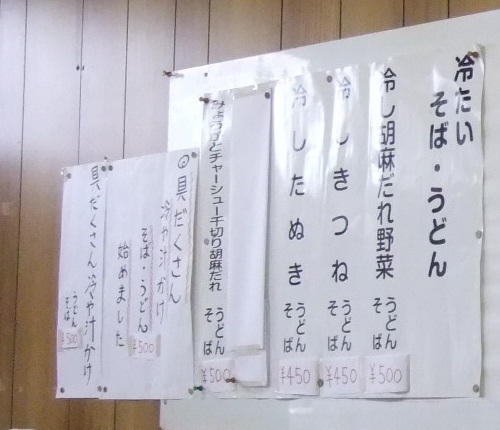 冷たい
そば・うどん
冷し胡麻だれ野菜 うどん そば
¥500
冷しきつね うどん そば
¥450
冷したぬき うどん そば
¥450
みょうがとチャーシュー千切り胡麻だれ うどん そば
¥500
◎具だくさん
冷や汁かけ
そば・うどん
¥500
始めました
具だくさん冷や汁かけ
うどん
そば
¥500